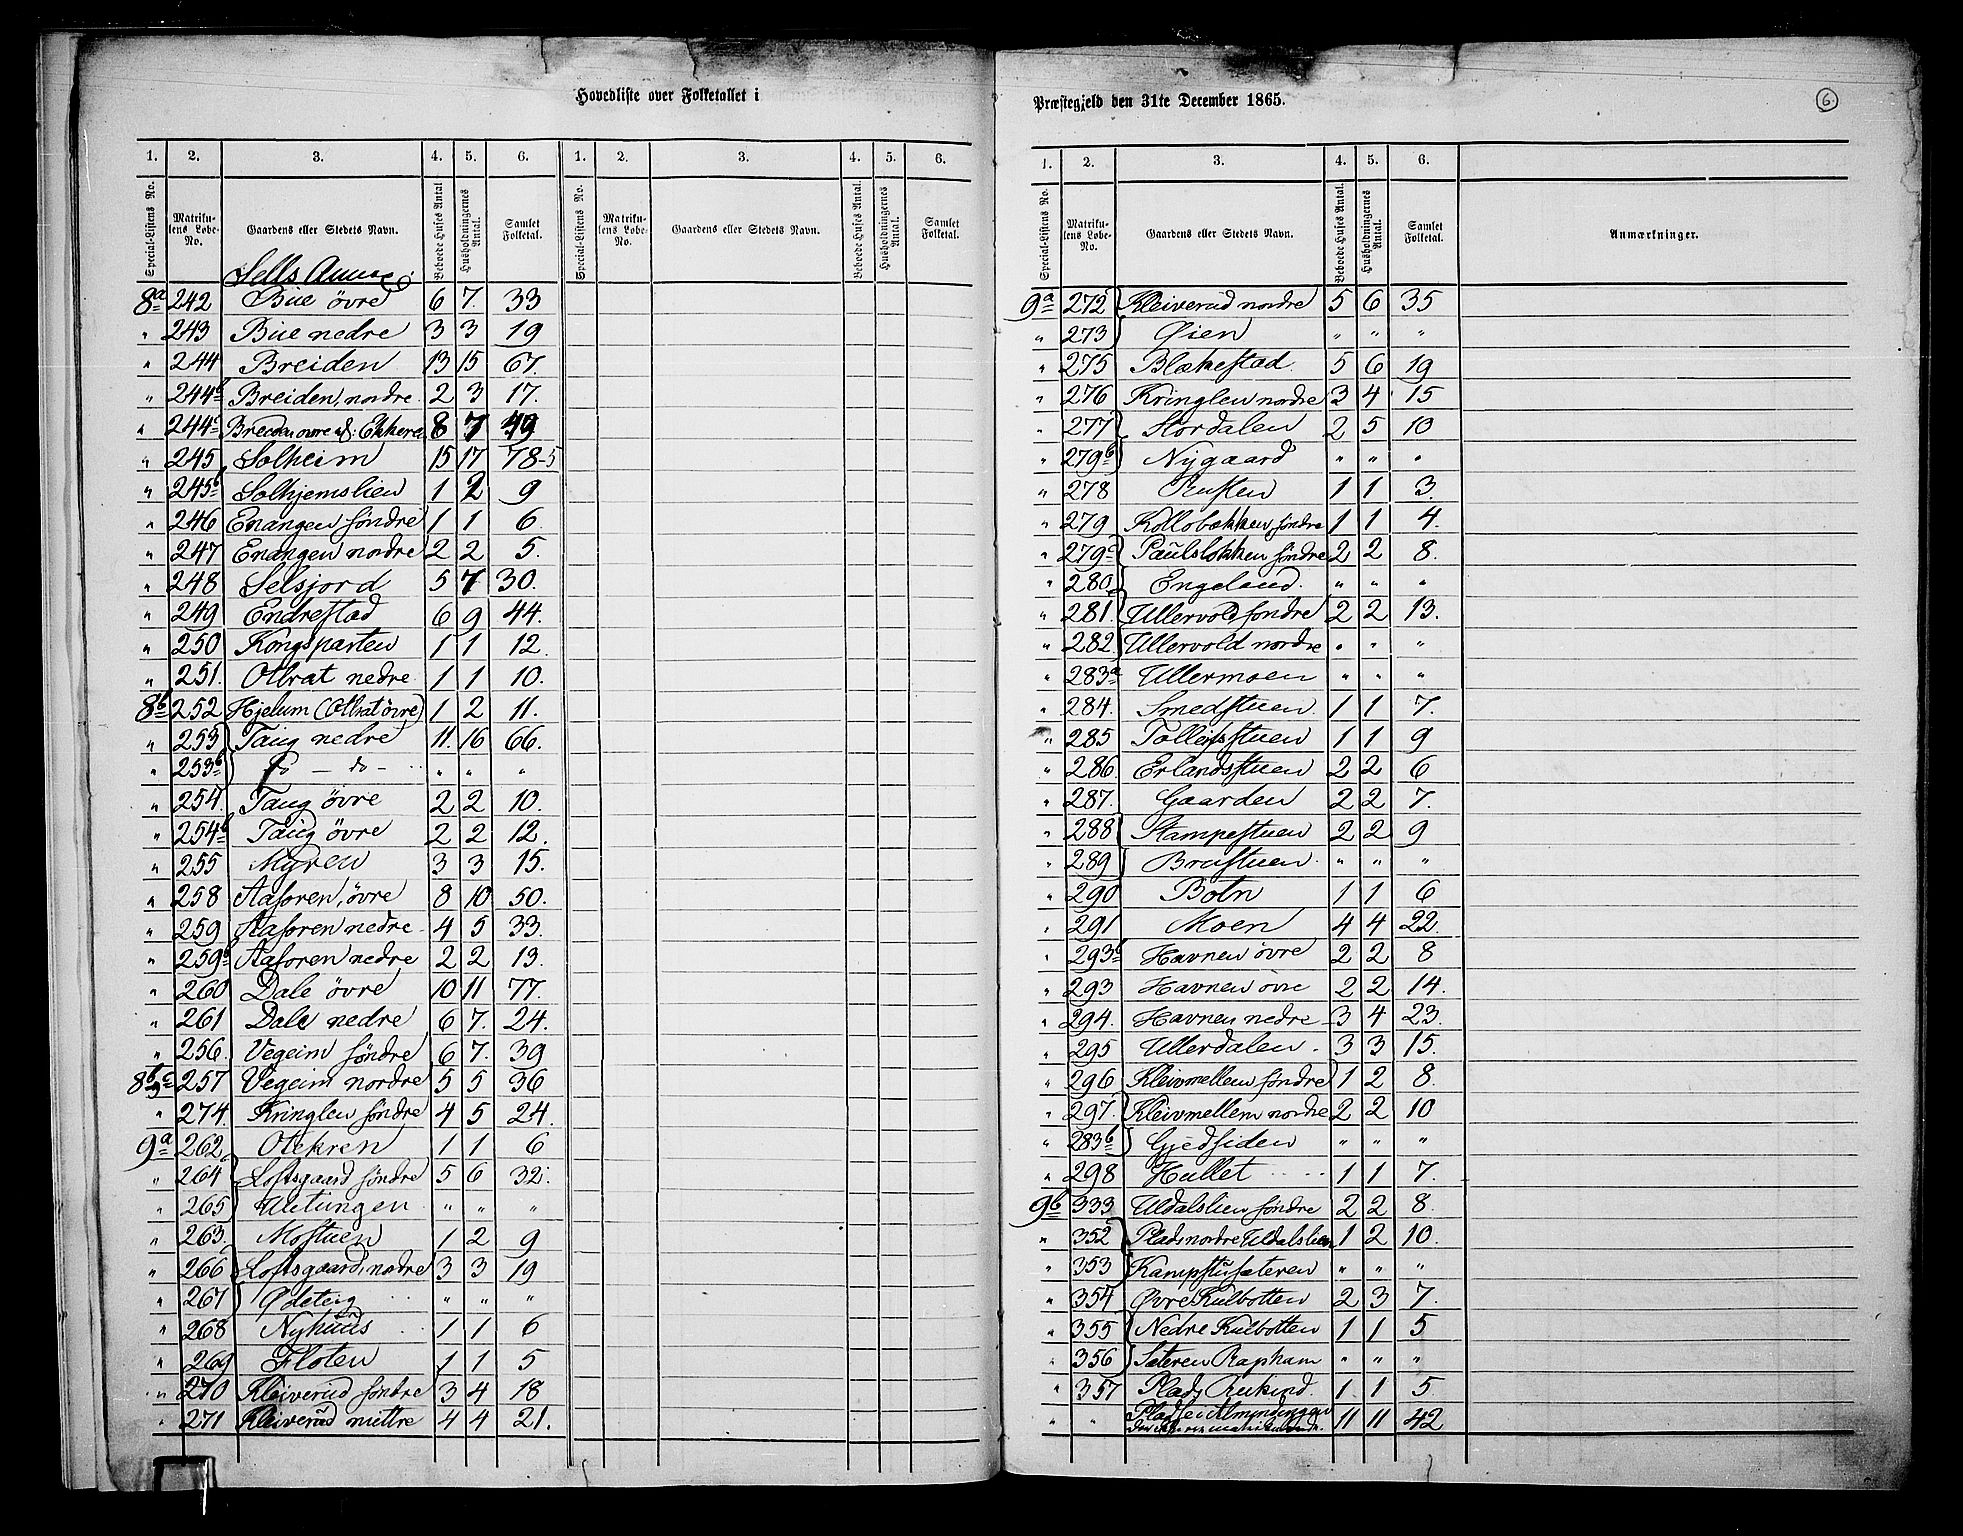 Hovedliste over Folketallet i
1. 2. 3. 4. 5. 6. 1. 2. 3. 4. 5. 6.
Special-Listens No. Matrikulens Løbe-No. Gaardens eller Stedets Navn. Beboede Huses Antal Husholdningernes Antal. Samlet Folketal. Special-Listens No. Matrikulens Løbe-No. Gaardens eller Stedets Navn. Beboede Huses Antal. Husholdningernes Antal. Samlet Folketal.
Sells Annex
8a 242 Bue övre 6 7. 33
" 243 Bue nedre 3 3 19
" 244 Breiden 13 15 67.
" 244b Breiden, nordre 2 3 17.
" 244c Breiden övre af. Ekkeren 8 7 49
" 245 Solheim 15 17 78-5
" 245b Solhjemslien 1 2 9
" 246 Enangen söndre 1 1 6.
" 247 Enangen nordre 2 2 5.
" 248 Selsjord 5 7 30.
" 249 Endrestad 6 9 44.
" 250 Kongsparten 1 1 12.
" 251. Olbrat nedre 1 1 10.
8b 252 Hjelum (Olbrat övre) 1 2 11.
" 253 Taug nedre 11. 16 66.
" 253b do — do — " " "
" 254. Taug övre 2 2 10.
" 254b Taug övre 2 2 12.
" 255 Myren 3 3 15.
" 258 Aasoren, övre 8 10 50.
" 259 Aasoren nedre 4 5 33.
" 259b Aasoren nedre 2 2 13.
" 260 Dale övre 10 11 77.
" 261 Dale nedre 6 7. 24.
" 256. Vegeim söndre 6 7. 39
8b 9c 257 Vegeim nordre 5 5 36
" 274. Kringlen söndre 4 5 24.
9a 262 Olekren 1 1 6
" 264 Loftsgaard söndre 5 6 32.
" 265 Ulitungen " " "
" 263. Mostuen 1 2 9
" 266 Loftsgaard, nordre 3 3 19
" 267 Ödeteig " " "
" 268 Nyhuus 1 1 6
" 269 Floten 1 1 5
" 270 Kleiverud söndre 3 4 18
" 271 Kleiverud mittre 4 4 21.
Præstegjeld den 31te December 1865.
6.
1. 2. 3. 4. 5. 6.
Special-Listens No. Matrikulens Løbe-No. Gaardens eller Stedets Navn. Beboede Huses Antal. Husholdningernes Antal. Samlet Folketal. Anmærkninger.
9a 272 Kleiverud nordre 5 6 35
" 273 Øien " " "
" 275 Blækestad 5 6 19
" 276 Kringlen nordre 3 4 15
" 277 Stordalen 2 5 10
" 279b Nygaard " " "
" 278 Rusten 1 1 3.
" 279 Kollobækken söndre 1 1 4.
" 279c Paulsløkken söndre 2 2 8.
" 280 Engeland. " " "
" 281. Ullervold söndre 2 2 13.
282 Ullervold nordre " " "
" 283a Ullermoen " " "
" 284. Smedstuen 1 1 7.
" 285 Tollefsstuen 1 1 9
" 286. Erlandsstuen 2 2 6
" 287. Gaarden 2 2 7.
" 288 Stampestuen 2 2 9
" 289 Brustuen " " "
" 290 Botn 1 1 6
" 291 Moen 4 4 22.
" 293b Havnen övre 2 2 8
" 293 Havnen övre 2 2 14.
" 294. Havnen nedre 3 4 23.
" 295 Ullerdalen 3 3 15.
" 296 Kleivmellem söndre 1 2 8.
" 297. Kleivmellem nordre 2 2 10
" 283b Gjedsiden " " "
" 298 Hullet 1 1 7.
9b 333 Uldalslien söndre 2 2 8.
" 352 Plads nordre Uldalslien 1 2 10.
" 353 Kampstusæteren " " "
" 354 Øvre Kulbotten 2 3 7.
" 355 Nedre Kulbotten 1 1 5
" 356 Sæteren Rapham " " "
" 357 Plads Rukind. 1. 1 5.
" " Pladse i Almindingen 11 11 42